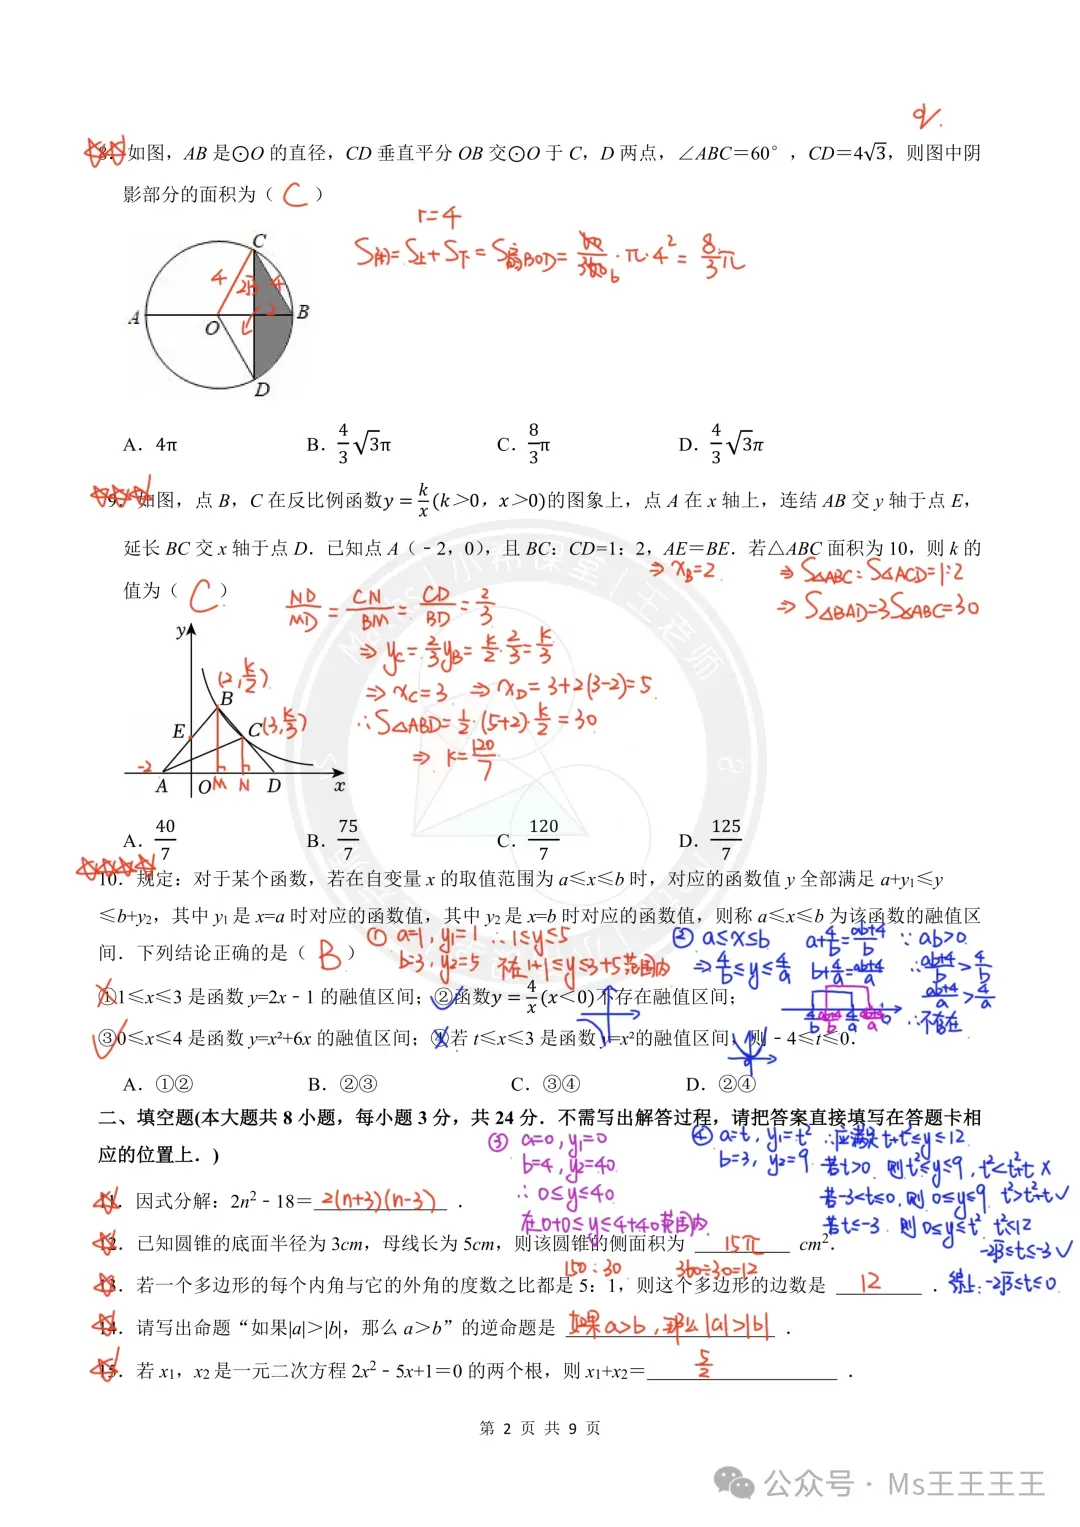 8. 如图，AB 是⊙O 的直径，CD 垂直平分 OB 交⊙O 于 C，D 两点，∠ABC＝60°，CD＝4√3，则图中阴
影部分的面积为（ C ）
r=4
S阴=S上+S下=S扇BOD=60/360·π·4²=8/3π
C
4
2√3
4
A
O
2
B
D
A．4π B．4/3√3π C．8/3π D．4/3√3π
9．如图，点 B，C 在反比例函数y=k/x(k＞0，x＞0)的图象上，点 A 在 x 轴上，连结 AB 交 y 轴于点 E，
延长 BC 交 x 轴于点 D．已知点 A（﹣2，0），且 BC：CD=1：2，AE=BE．若△ABC 面积为 10，则 k 的
⇒ xB=2
⇒ S△ABC：S△ACD=1:2
值为（ C ）
⇒ S△BAD=3S△ABC=30
ND/MD=CN/BM=CD/BD=2/3
⇒ yC=2/3yB=k/2·2/3=k/3
⇒ xC=3 ⇒ xD=3+2(3-2)=5
∴S△ABD=1/2·(5+2)·k/2=30
⇒ k=120/7
y
(2,k/2)
B
E
C(3,k/3)
-2
A O M N D x
A．40/7 B．75/7 C．120/7 D．125/7
10．规定：对于某个函数，若在自变量 x 的取值范围为 a≤x≤b 时，对应的函数值 y 全部满足 a+y₁≤y
≤b+y₂，其中 y₁ 是 x=a 时对应的函数值，其中 y₂ 是 x=b 时对应的函数值，则称 a≤x≤b 为该函数的融值区
间．下列结论正确的是（ B ）
① a=1, y₁=1 ∴1≤y≤5
b=3, y₂=5 不在1+1≤y≤3+5范围内
② a≤x≤b
⇒ 4/b≤y≤4/a
a+4/b=ab+4/b
b+4/a=ab+4/a
∵ ab>0
∴ab+4/b>4/b
ab+4/a>4/a
∴不存在
①1≤x≤3 是函数 y=2x﹣1 的融值区间；②函数y=4/x(x＜0)不存在融值区间；
③0≤x≤4 是函数 y=x²+6x 的融值区间；④若 t≤x≤3 是函数 y=x²的融值区间，则﹣4≤t≤0．
A．①② B．②③ C．③④ D．②④
二、填空题(本大题共 8 小题，每小题 3 分，共 24 分．不需写出解答过程，请把答案直接填写在答题卡相
应的位置上．)
③ a=0, y₁=0
b=4, y₂=40
∴ 0≤y≤40
在0+0≤y≤4+40范围内
④ a=t, y₁=t² ∴应满足t+t²≤y≤12
b=3, y₂=9 若t>0 则t²≤y≤9, t²<t²+t ×
若-3<t≤0, 则 0≤y≤9 t²>t²+t ✓
若t≤-3 则 0≤y≤t² t²≤12
-2√3≤t≤-3 ✓
综上: -2√3≤t≤0
11．因式分解：2n²﹣18＝ 2(n+3)(n-3) ．
12．已知圆锥的底面半径为 3cm，母线长为 5cm，则该圆锥的侧面积为 15π cm²．
150：30 360÷30=12
13．若一个多边形的每个内角与它的外角的度数之比都是 5：1，则这个多边形的边数是 12 ．
14．请写出命题“如果|a|＞|b|，那么 a＞b”的逆命题是 如果a>b,那么|a|>|b| ．
15．若 x₁，x₂是一元二次方程 2x²﹣5x+1＝0 的两个根，则 x₁+x₂＝ 5/2 ．
第 2 页 共 9 页
公众号 · Ms王王王王